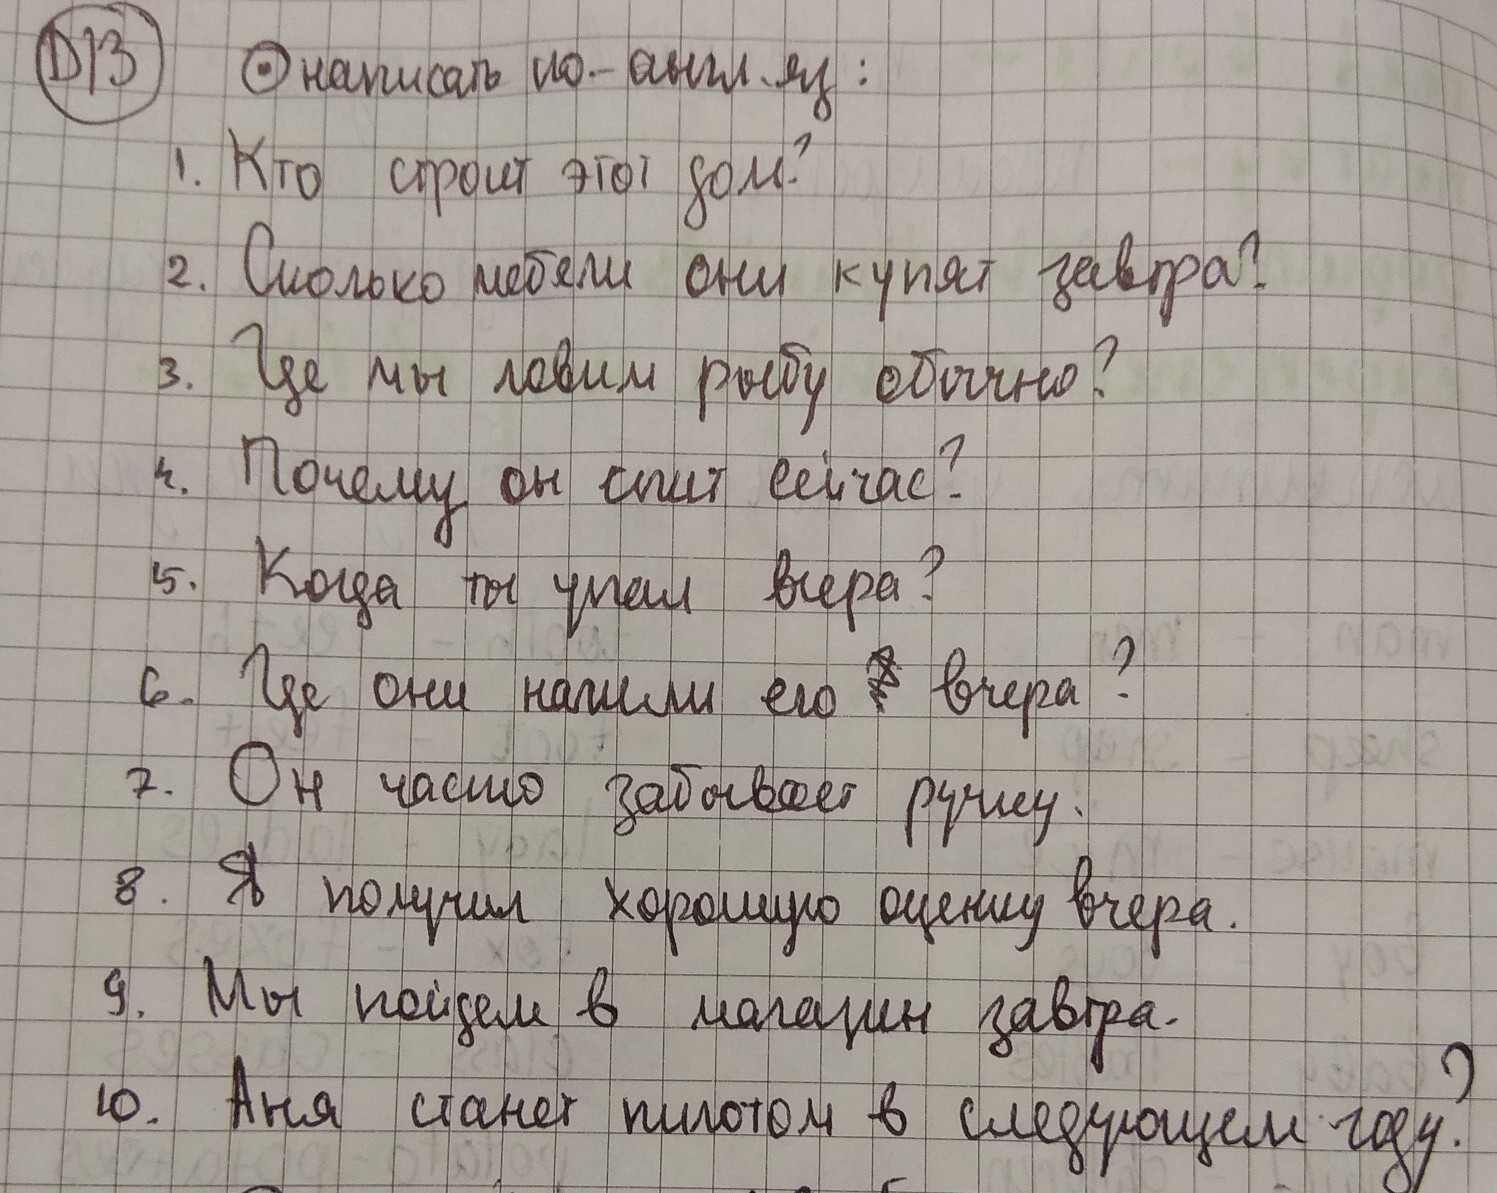 D/З ⊙ написать по-англ.яз:
1. Кто строит этот дом?
2. Сколько мебели они купят завтра?
3. Где мы ловим рыбу обычно?
4. Почему он спит сейчас?
5. Когда ты упал вчера?
6. Где они нашли его вчера?
7. Он часто забывает ручку.
8. Я получил хорошую оценку вчера.
9. Мы пойдем в магазин завтра.
10. Аня станет пилотом в следующем году?